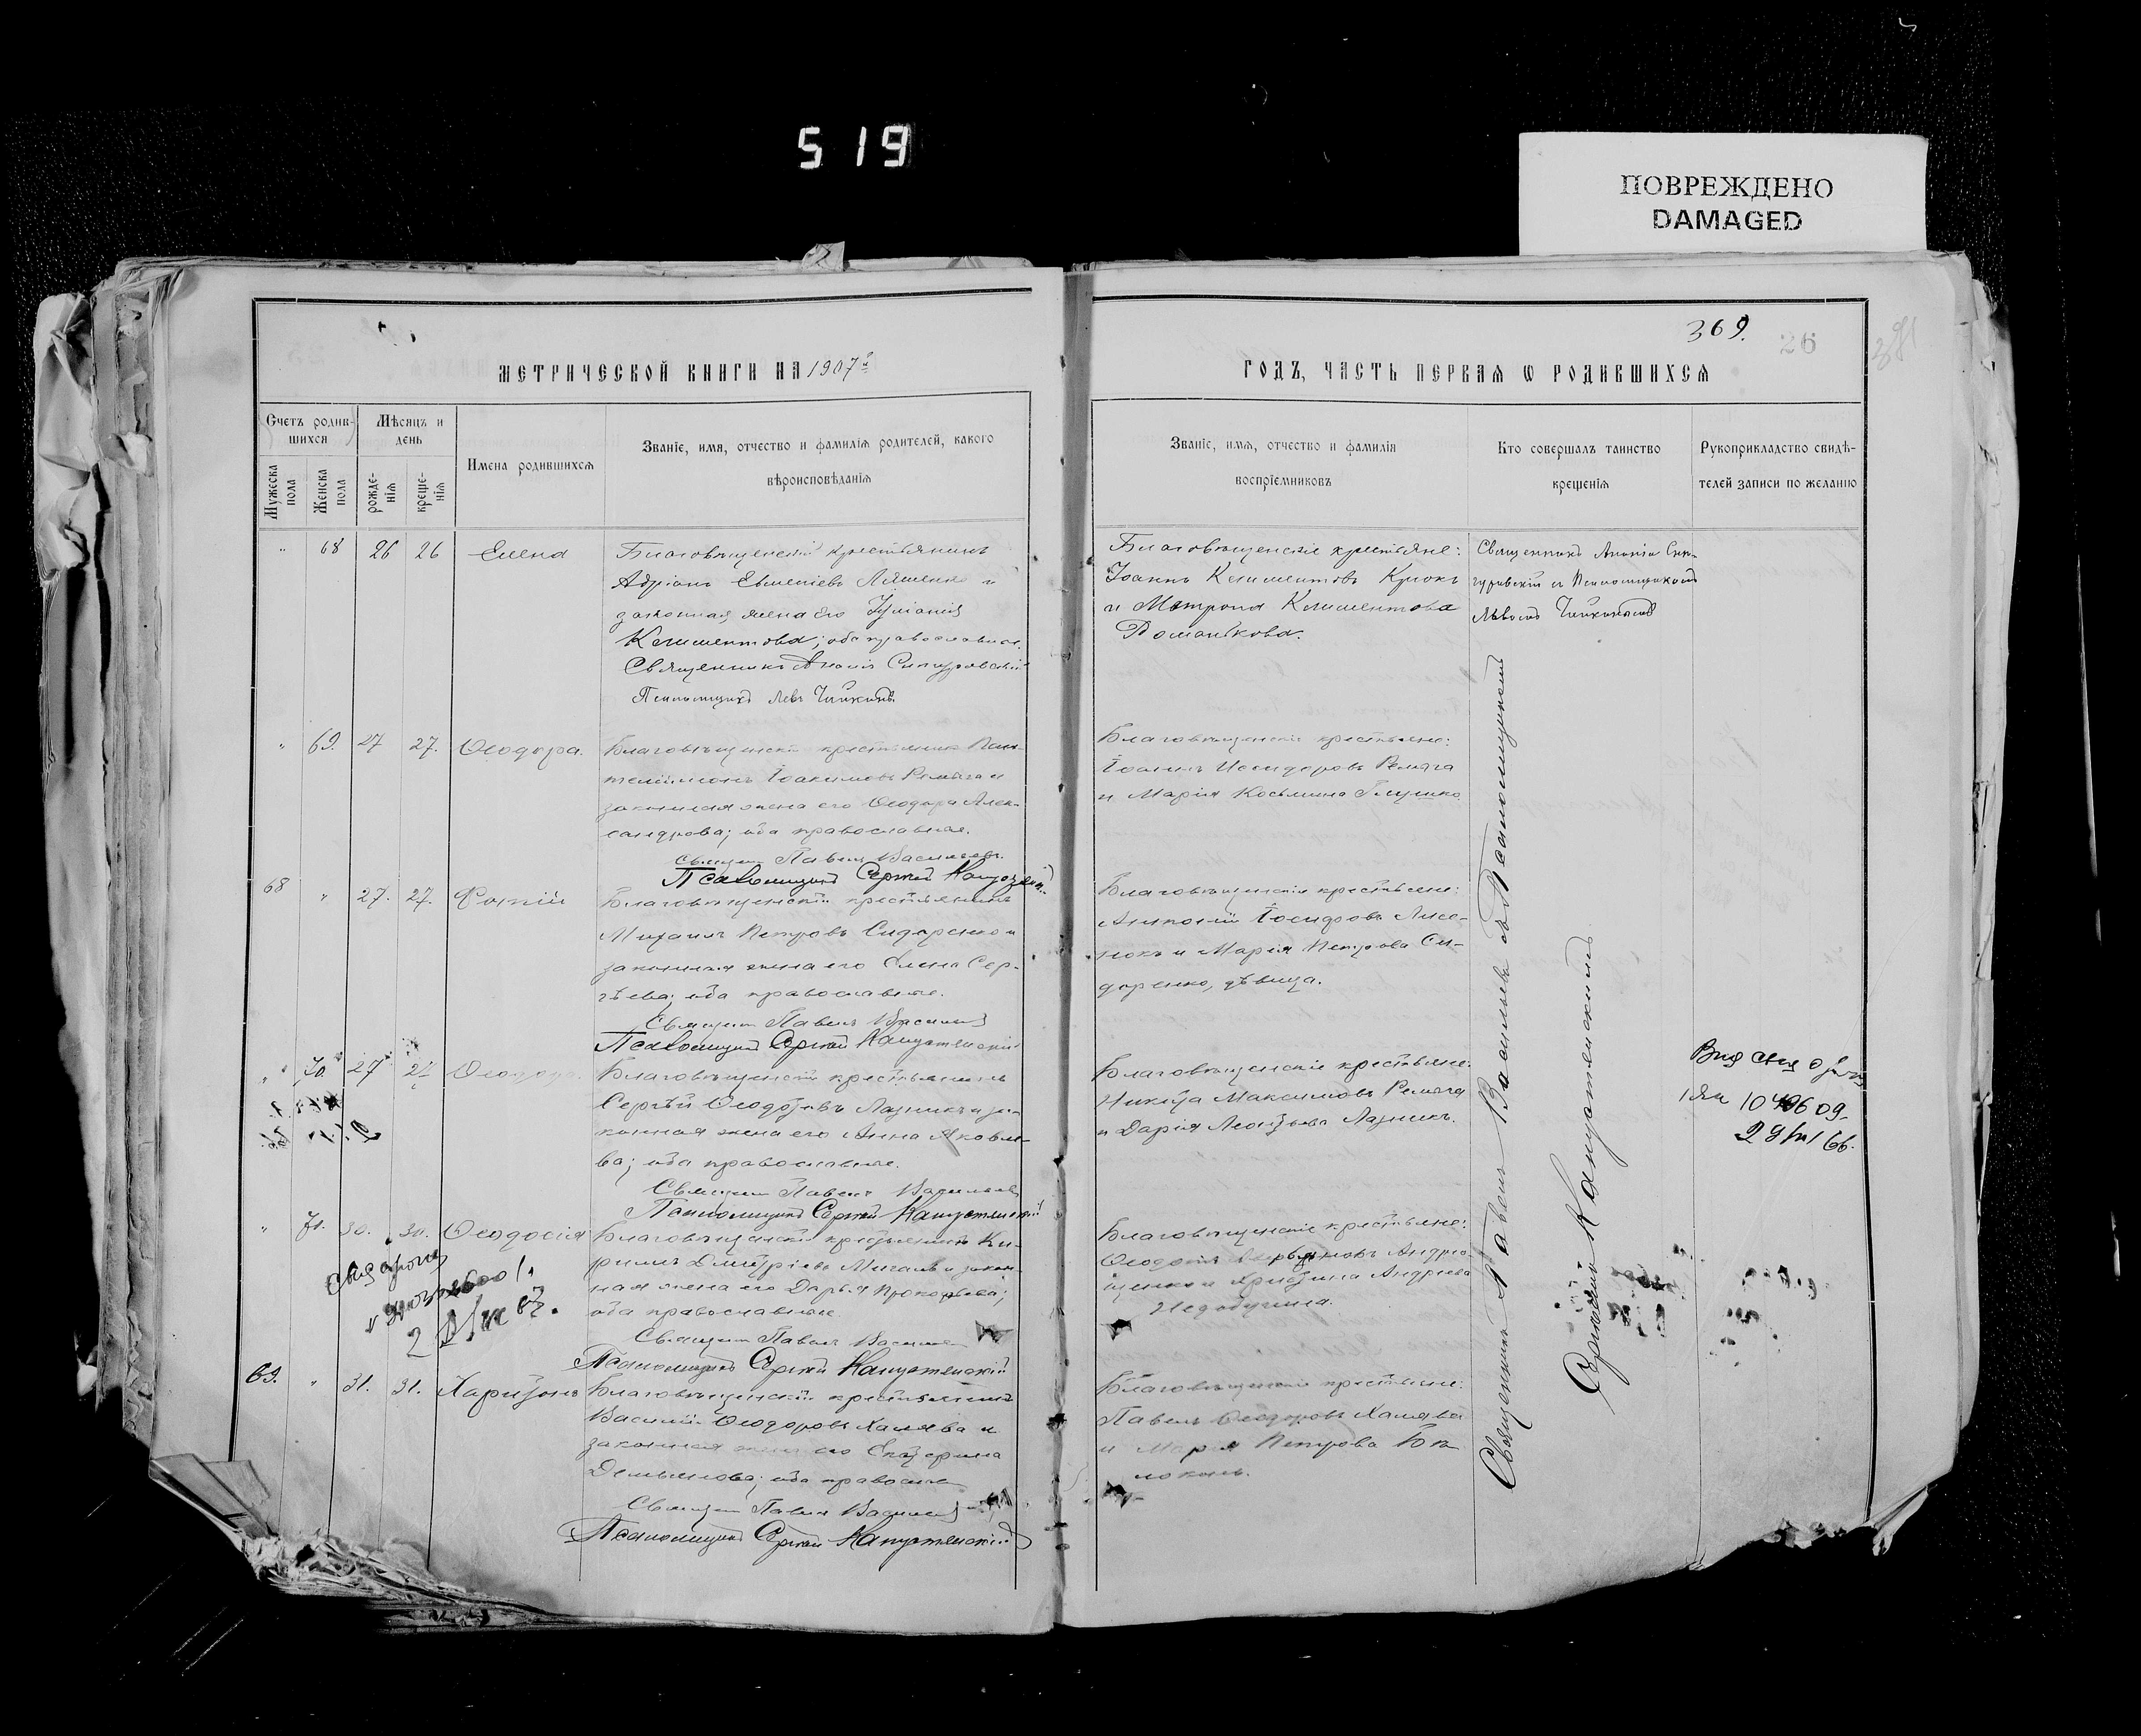 519
ПОВРЕЖДЕНО
DAMAGED
369.
26
381
МЕТРИЧЕСКОЙ КНИГИ НА 1907 й
ГОДЪ, ЧАСТЬ ПЕРВАЯ Ѡ РОДИВШИХСЯ
Счетъ родив-
шихся
Мужеска пола
Женска пола
Мѣсяцъ и
день
рожде-
нія
креще-
нія
Имена родившихся
Званіе, имя, отчество и фамилія родителей, какого
вѣроисповѣданія
Званіе, имя, отчество и фамилія
воспріемниковъ
Кто совершалъ таинство
крещенія
Рукоприкладство свидѣ-
телей записи по желанію
" 68 26 26 Елена
Благовѣщенскій крестьянинъ
Адріанъ Ляшенко и
законная жена его Іуліанія
Климентова; оба православные.
Священникъ Ананія
Псаломщикъ Левъ
Благовѣщенскіе крестьяне:
Іоаннъ Климентовъ Крюкъ
и Матрона Климентова
Романкова.
Священникъ Ананія
съ Псаломщикомъ
Львомъ
" 69. 27 27. Ѳеодора.
Благовѣщенскій крестьянинъ Пан-
телеимонъ Іоакимовъ Ремяга и
законная жена его Ѳеодора Алек-
сандрова; оба православные.
Священ. Павелъ Васильевъ
Псаломщикъ Сергій
Благовѣщенскіе крестьяне:
Іоаннъ Исидоровъ Ремяга
и Марія Косьмина Глушко
68 " 27. 27. Фотій
Благовѣщенскій крестьянинъ
Михаилъ Петровъ Сидоренко и
законная жена его Елена Сер-
гѣева; оба православные.
Священ. Павелъ Васильевъ
Псаломщикъ Сергій Капустянскій
Благовѣщенскіе крестьяне:
Антоній Іосифовъ Лисе-
нокъ и Марія Петрова Си-
доренко, дѣвица.
" 70. 27 27 Ѳеодора.
Благовѣщенскій крестьянинъ
Сергѣй Ѳеодоровъ Лазникъ и за-
конная жена его Анна Яковле-
ва; оба православные.
Священ. Павелъ Васильевъ
Псаломщикъ Сергій Капустянскій
Благовѣщенскіе крестьяне:
Никита Максимовъ Ремяга
и Дарія Леонтьева Лазникъ.
" 71. 30. 30. Ѳеодосія
Благовѣщенскій крестьянинъ Ки-
риллъ Димитріевъ и закон-
ная жена его Дарья Прокофьева;
оба православные
Священ. Павелъ Васильевъ
Псаломщикъ Сергій Капустянскій
Благовѣщенскіе крестьяне:
Андрю-
щенко и Христина Андреева
69. " 31. 31. Харитонъ
Благовѣщенскій крестьянинъ
Василій Ѳеодоровъ Халява и
законная жена его Екатерина
Демьянова; оба православные
Священ. Павелъ Васильевъ
Псаломщикъ Сергій Капустянскій
Благовѣщенскіе крестьяне:
Павелъ Ѳеодоровъ Халява
и Марія Петрова Бѣ-
локонь.
Священникъ Павелъ Васильевъ съ Псаломщикомъ
Сергіемъ Капустянскимъ